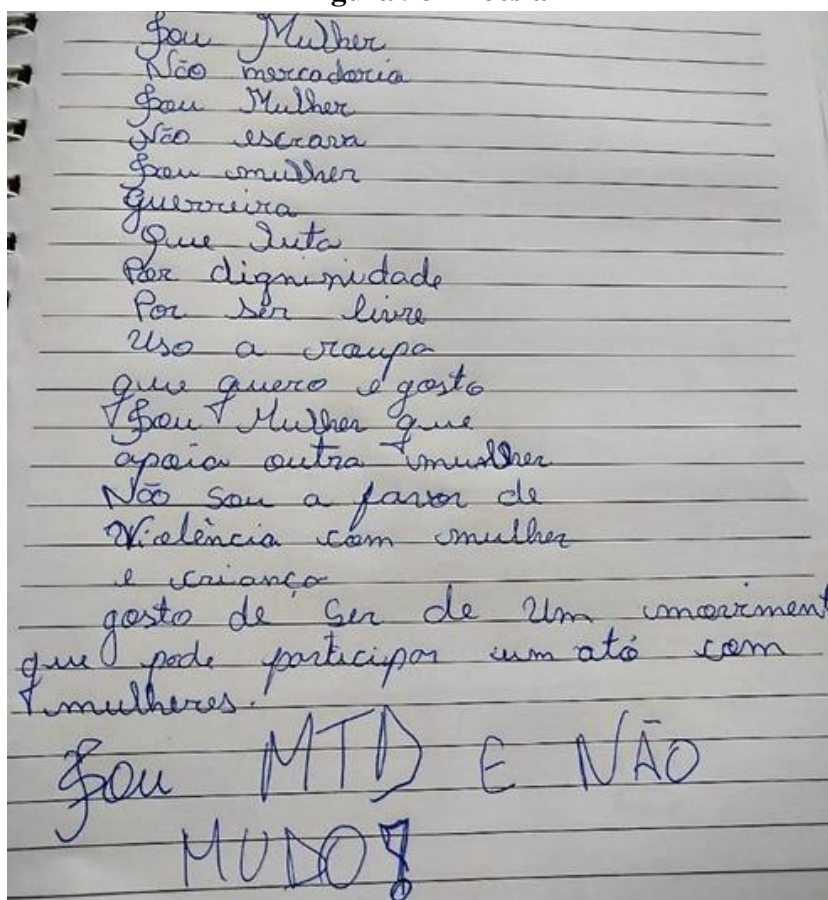 Sou Mulher
Não mercadoria
Sou Mulher
Não escrava
Sou mulher
Guerreira
Que luta
Por digninidade
Por ser livre
Uso a roupa
que quero e gosto
Sou Mulher que
apoia outra mulher
Não sou a favor de
Violência com mulher
e criança
gosto de ser de um moviment
que pode participar um ato com
mulheres.
Sou MTD E NÃO
MUDO!